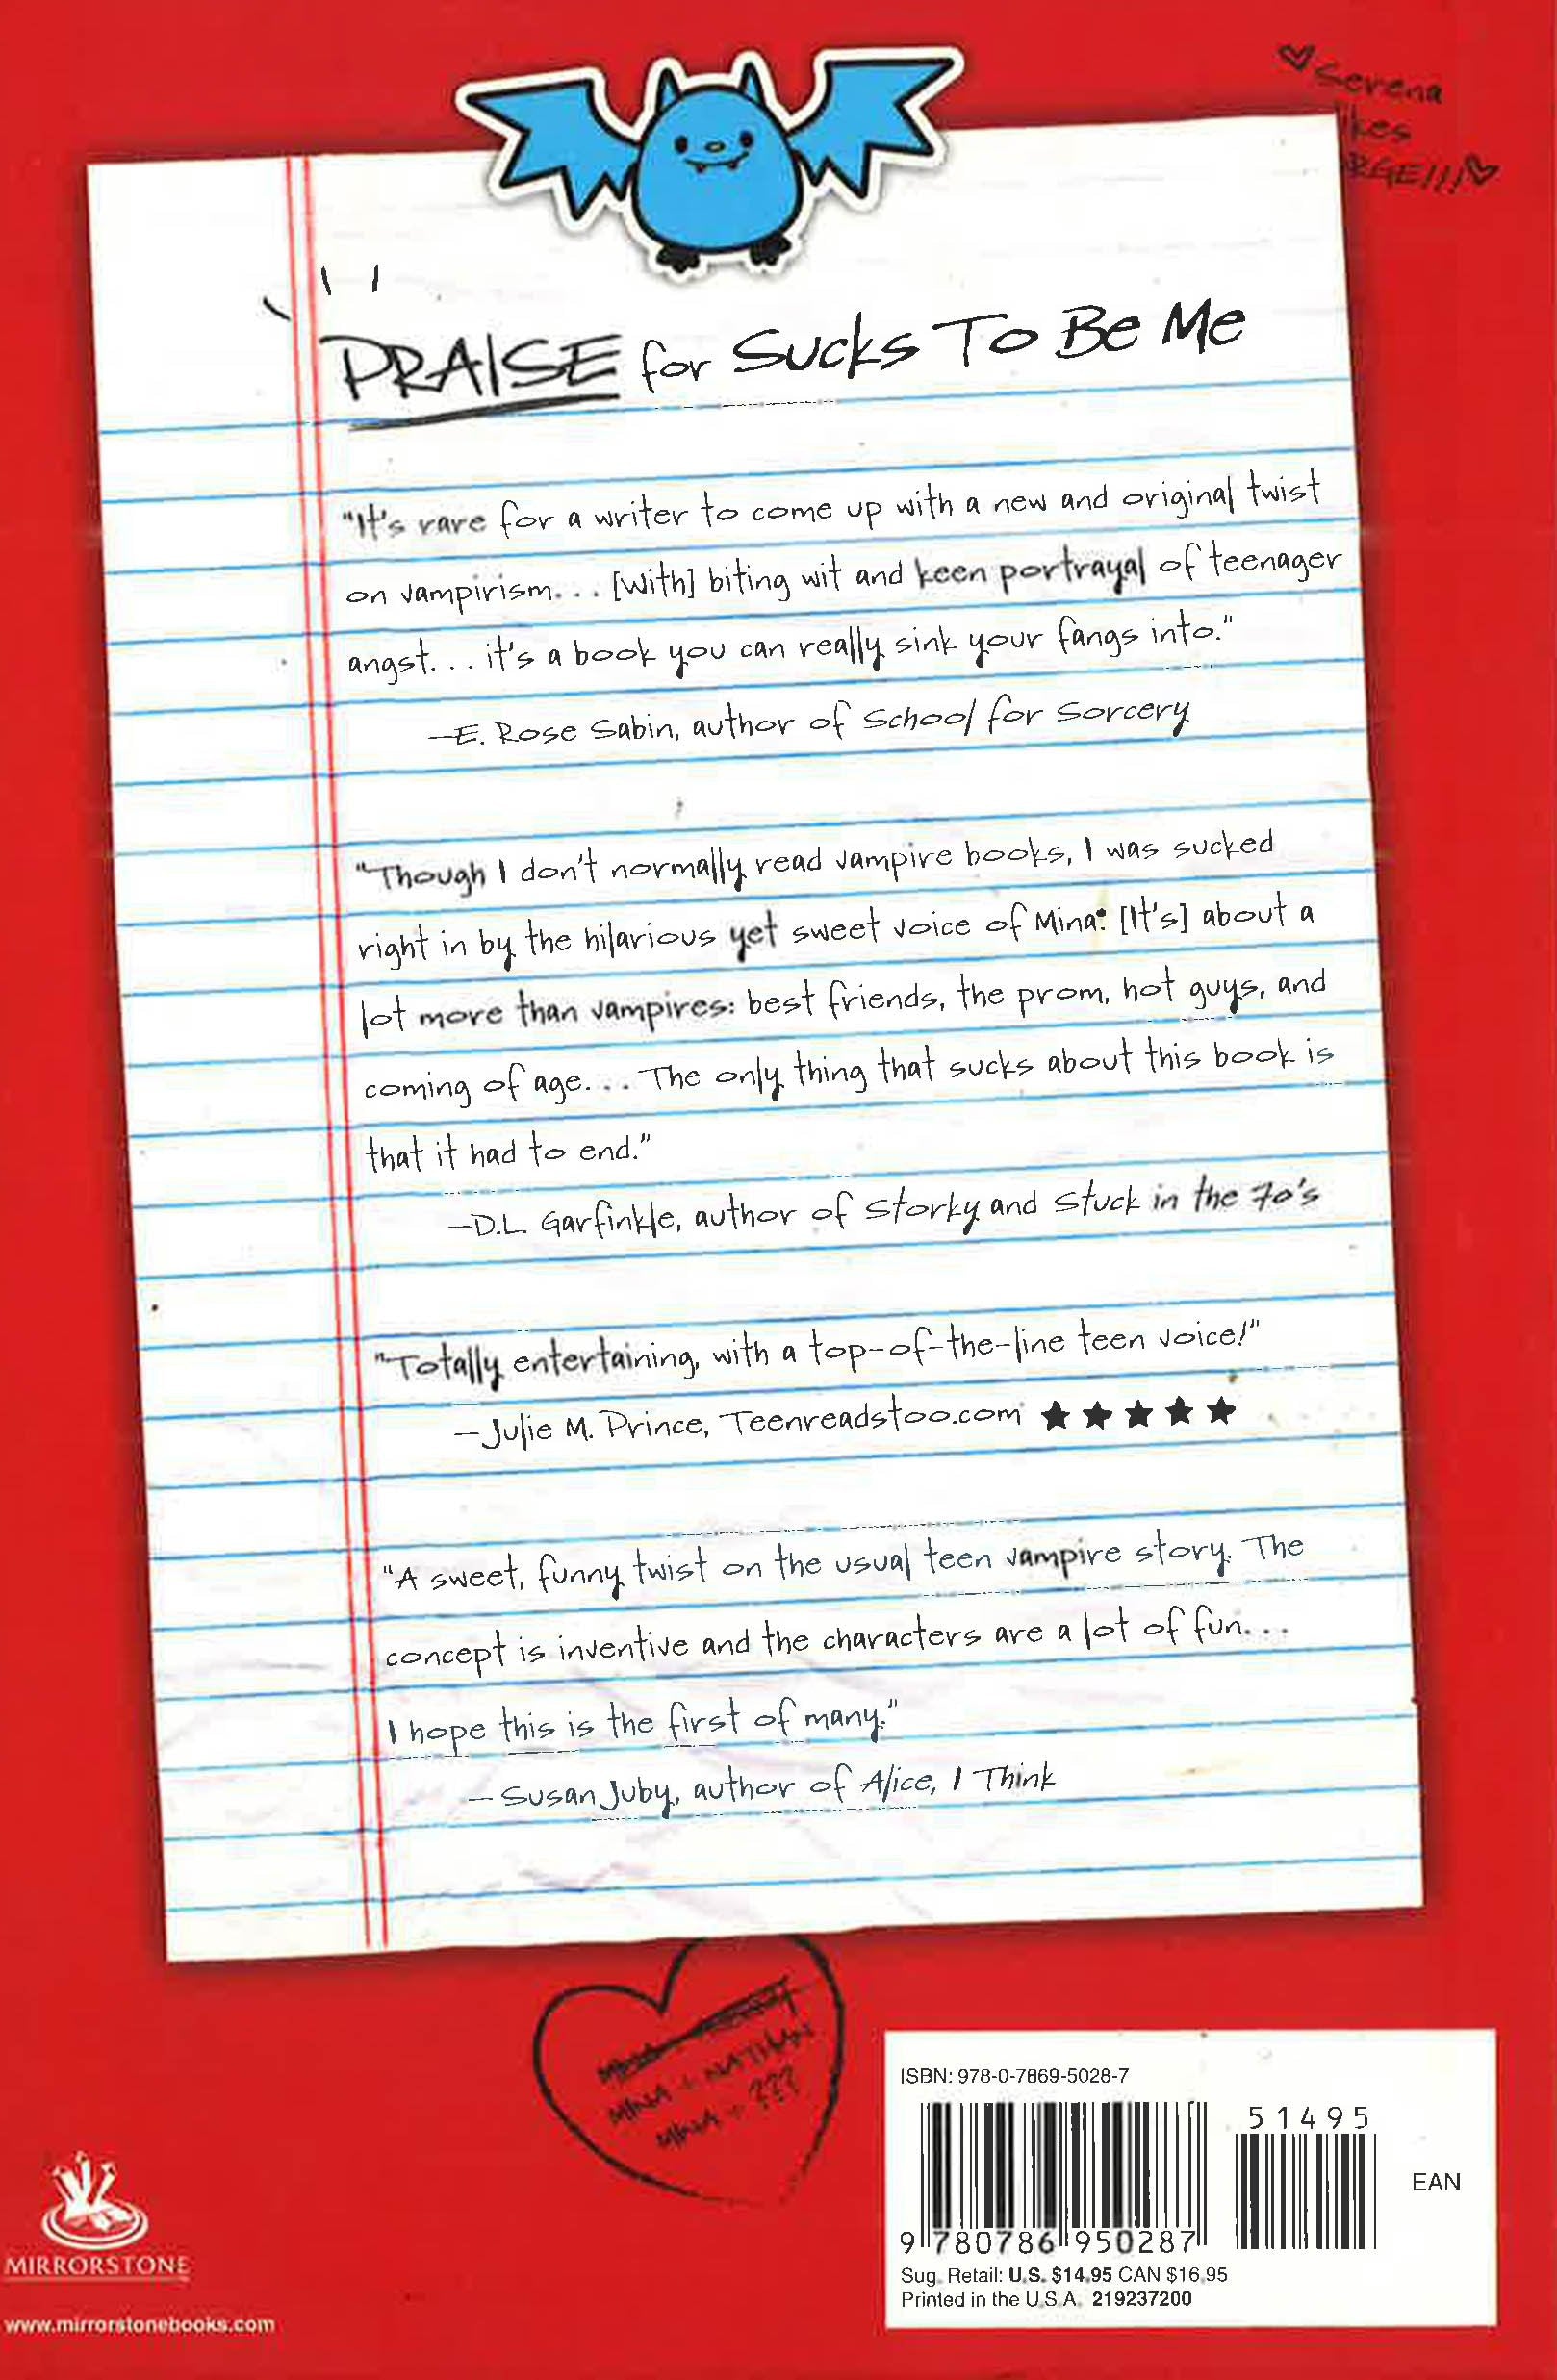 Serena
PRAISE for Sucks To Be Me
"It's rare for a writer to come up with a new and original twist
on vampirism... [With] biting wit and keen portrayal of teenager
angst... it's a book you can really sink your fangs into."
—E. Rose Sabin, author of School for Sorcery
"Though I don't normally read vampire books, I was sucked
right in by the hilarious yet sweet voice of Mina. [It's] about a
lot more than vampires: best friends, the prom, hot guys, and
coming of age... The only thing that sucks about this book is
that it had to end."
—D.L. Garfinkle, author of Storky and Stuck in the 70's
"Totally entertaining, with a top-of-the-line teen voice!"
—Julie M. Prince, Teenreadstoo.com ★★★★★
"A sweet, funny twist on the usual teen vampire story. The
concept is inventive and the characters are a lot of fun...
I hope this is the first of many."
—Susan Juby, author of Alice, I Think
MINA + NATHAN
MINA + ???
MIRRORSTONE
www.mirrorstonebooks.com
ISBN: 978-0-7869-5028-7
51495
EAN
9 780786 950287
Sug. Retail: U.S. $14.95 CAN $16.95
Printed in the U.S.A. 219237200